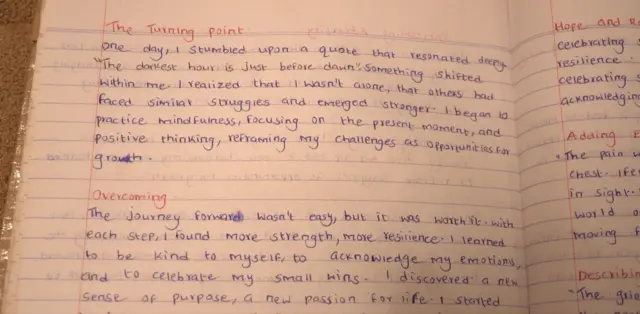 The Turning point:
one day, I stumbled upon a quote that resonated deeply
"The darkest hour is just before dawn". Something shifted
within me. I realized that I wasn't alone, that others had
faced similar struggles and emerged stronger. I began to
practice mindfulness, focusing on the present moment, and
positive thinking, reframing my challenges as opportunities for
growth.
Overcoming
The journey forward wasn't easy, but it was worth it. with
each step, I found more strength, more resilience. I learned
to be kind to myself, to acknowledge my emotions,
and to celebrate my small wins. I discovered a new
sense of purpose, a new passion for life. I started
Hope and
celebrating
resilience.
celebrating
acknowledging
Adding
"The pain
chest.
in sight.
world
moving
"The